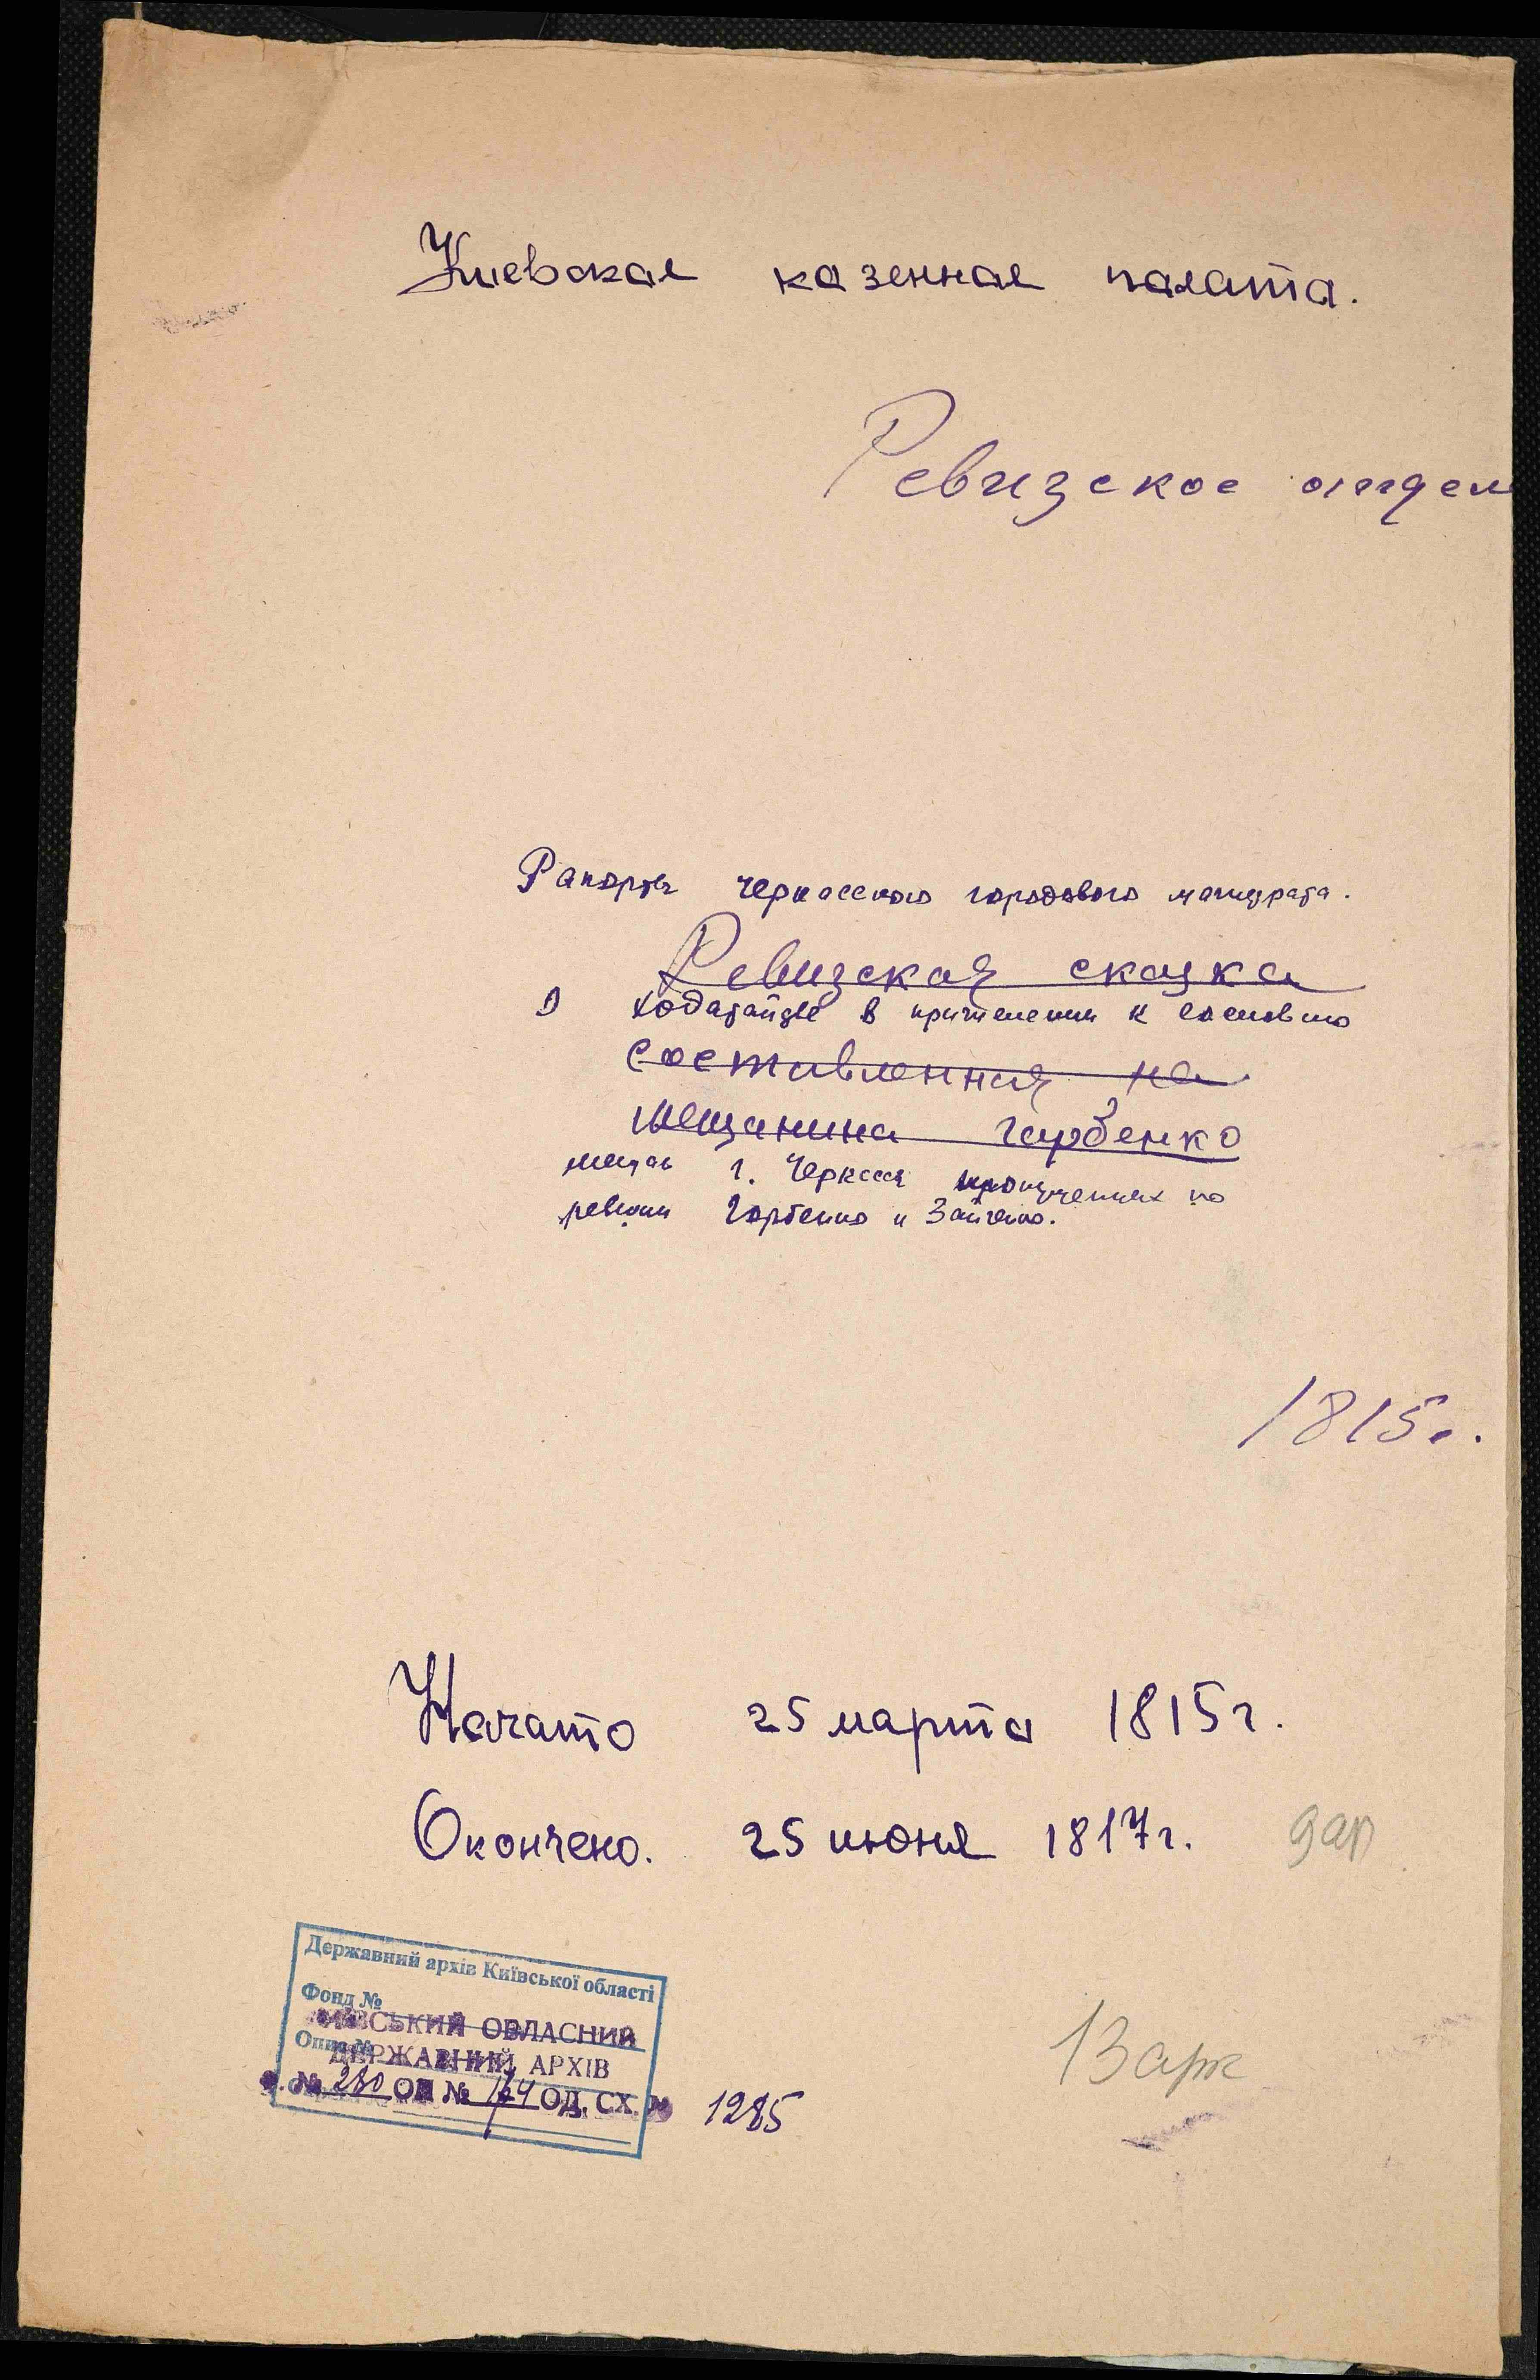 Киевская казенная палата.
Ревизское отдел
Рапорты черкасского городового магистрата.
Ревизская сказка
О ходатайстве в причислении к сословию
составленная на
мещанина Горбенко
мещан г. Черкассы пропущенных по
ревизии Горбенко и Зайченко.
1815г.
Начато 25 марта 1815г.
Окончено. 25 июня 1817г.
9ар
Державний архів Київської області
Фонд №
КИЇВСЬКИЙ ОБЛАСНИЙ
Опис №
ДЕРЖАВНИЙ АРХІВ
Ф. № 280 ОП № ОД. СХ. № 1285
13 арк